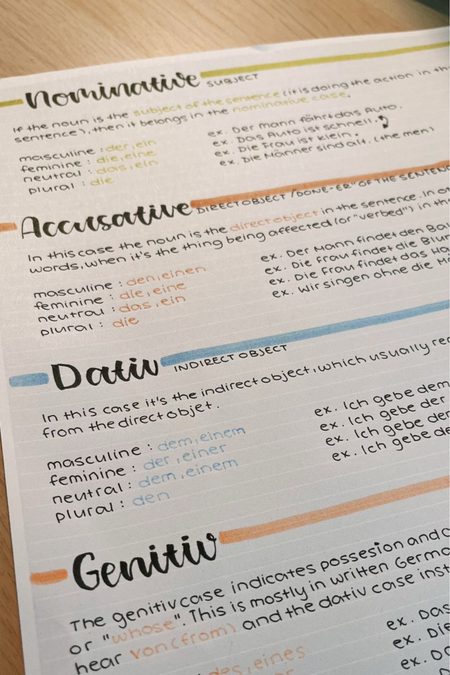 Nominative SUBJECT
If the noun is the subject of the sentence (it is doing the action in th
sentence), then it belongs in the nominative case.
masculine : der, ein
feminine : die, eine
neutral : das, ein
plural : die
ex. Der Mann fährt das Auto.
ex. Das Auto ist schnell.
ex. Die Frau ist klein.
ex. Die Männer sind alt. (the men)
Accusative DIRECT OBJECT / DONE-ER OF THE SENTENC
In this case the noun is the direct object in the sentence, in o
words, when it's the thing being affected (or "verbed"), in th
masculine : den, einen
feminine : die, eine
neutral : das, ein
plural : die
ex. Der Mann findet den Bal
ex. Die Frau findet die Blu
ex. Die Frau findet das Ha
ex. Wir singen ohne die Mä
Dativ INDIRECT OBJECT
In this case it's the indirect object, which usually re
from the direct objet.
masculine : dem, einem
feminine : der, einer
neutral : dem, einem
plural : den
ex. Ich gebe dem
ex. Ich gebe der
ex. Ich gebe dem
ex. Ich gebe de
Genitiv
The genitiv case indicates possesion and c
or "whose". This is mostly in written Germa
hear von (from) and the dativ case inst
des, eines
ex. Das
ex. Die
ex. Da